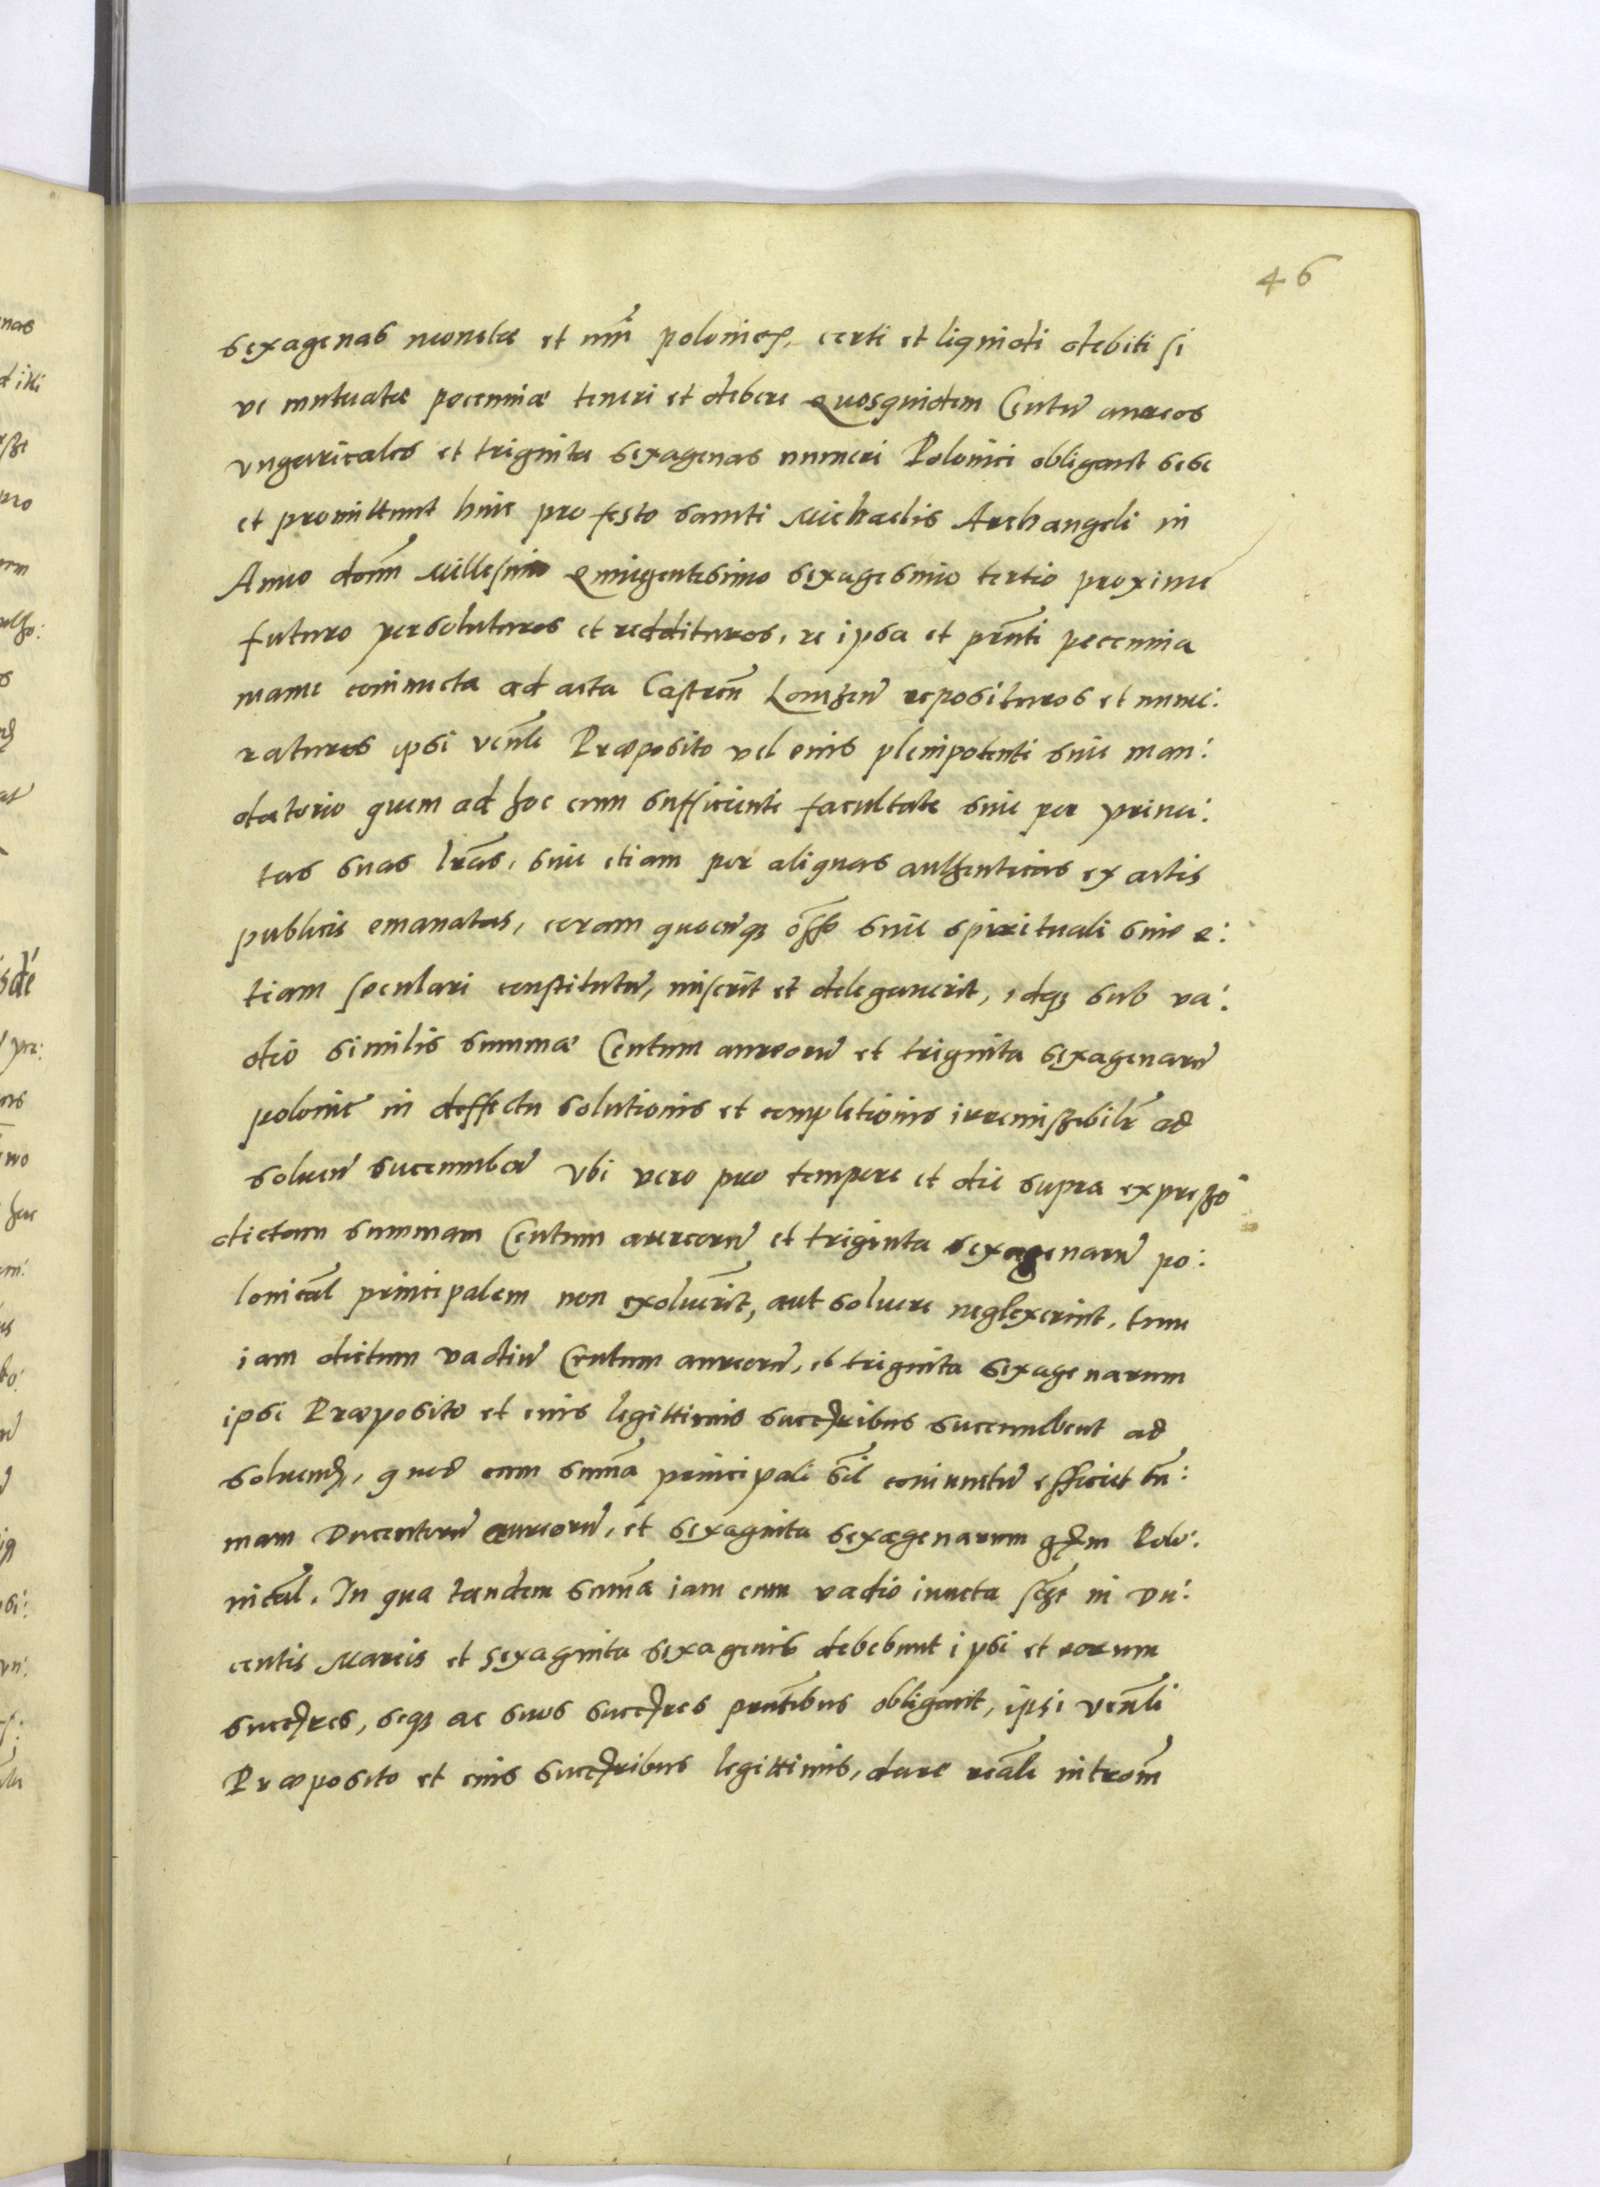 46
sexagenas monetæ et nũi polonicę, certi et liquidi debiti si
ve mutuatæ pecuniæ teneri et debere Quosquidem Centũ aureos
vngaricales et triginta sexagenas numeri Polonici obligant sese
et promittunt hinc pro festo sancti Michaelis Archangeli in
Anno domĩ Millesimo Quingentesimo sexagesimo tertio proxime
futuro persoluturos et reddituros, re ipsa et prñti pecunia
manu coniuncta ad acta Castreñ Lomzeñ reposituros et nume:
raturos ipsi veñli Præposito vel eius plenipotenti siue man:
datorio quem ad hoc cum sufficienti facultate siue per priua:
tas suas lr̃as, siue etiam per aliquas authenticas ex actis
publicis emanatas, coram quocũq; offo siue spirituali siue e:
tiam seculari constitutũ, miserit et delegauerit, idq; sub va:
dio similis summæ Centum aureorũ et triginta sexagenarũ
polonic̃ in deffectu solutionis et completionis irremissibilr̃ ad
soluen̄ succumben̄ Vbi vero pro tempore et die supra expresso
dictam summam Centum aureorũ et triginta sexagenarũ po:
lonical̃ principalem non exoluerĩt, aut soluere neglexerint, tunc
iam dictum vadiũ Centum aureorũ, et triginta sexagenarum
ipsi Præposito et eius legittimis succr̃ibus succumbent ad
soluend, quod cum sum̃a principali sil̃ coniunctũ efficiet sũ:
mam Ducentorũ aureorũ, et sexaginta sexagenarum Polo:
nical̃. In qua tandem sum̃a iam cum vadio iuncta sc̃z in Du:
centis Marcis et sexaginta sexagenis debebunt ipsi et eorum
succr̃es, seq; ac suos succr̃es prñtibus obligant, ipsi veñli
Præposito et eius succr̃ibus legittimis, dare real̃e introm̃